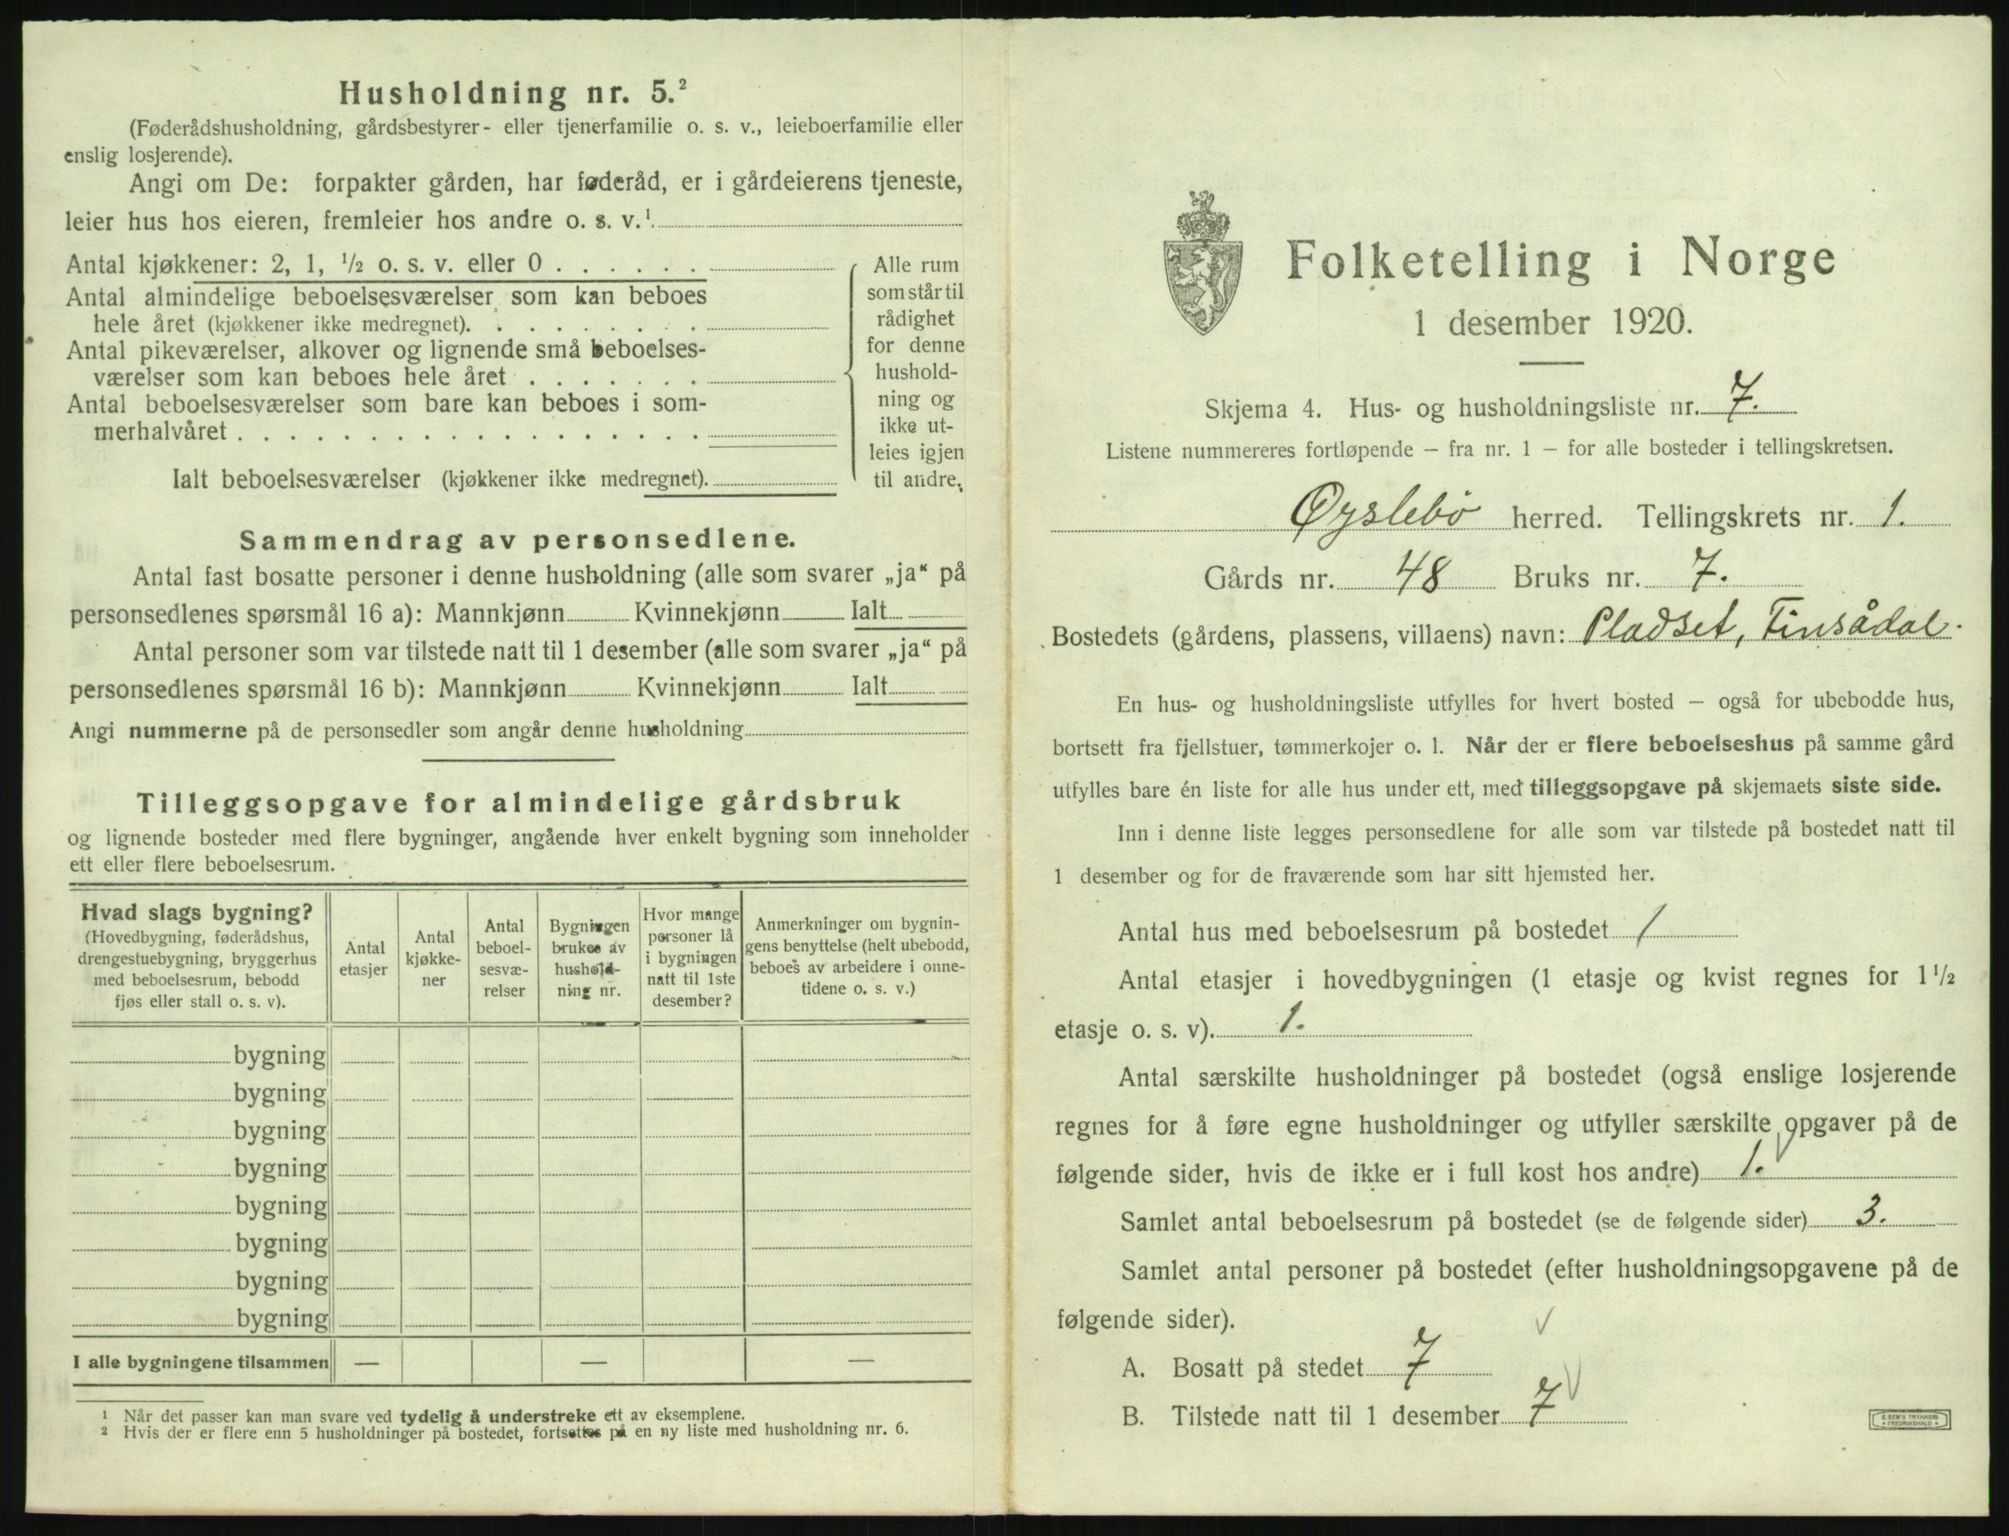 Husholdning nr. 5.²
(Føderådshusholdning, gårdsbestyrer- eller tjenerfamilie o. s. v., leieboerfamilie eller
enslig losjerende).
Angi om De: forpakter gården, har føderåd, er i gårdeierens tjeneste,
leier hus hos eieren, fremleier hos andre o. s. v.¹
Antal kjøkkener: 2, 1, ½ o. s. v. eller 0 . . . . . .
Antal almindelige beboelsesværelser som kan beboes
hele året (kjøkkener ikke medregnet). . . . . . . . .
Antal pikeværelser, alkover og lignende små beboelses-
værelser som kan beboes hele året . . . . . . .
Antal beboelsesværelser som bare kan beboes i som-
merhalvåret . . . . . . . . . . . . . . . . . .
Ialt beboelsesværelser (kjøkkener ikke medregnet).
Alle rum
som står til
rådighet
for denne
hushold-
ning og
ikke ut-
leies igjen
til andre.
Sammendrag av personsedlene.
Antal fast bosatte personer i denne husholdning (alle som svarer „ja“ på
personsedlenes spørsmål 16 a): Mannkjønn Kvinnekjønn Ialt
Antal personer som var tilstede natt til 1 desember (alle som svarer „ja“ på
personsedlenes spørsmål 16 b): Mannkjønn Kvinnekjønn Ialt
Angi nummerne på de personsedler som angår denne husholdning
Tilleggsopgave for almindelige gårdsbruk
og lignende bosteder med flere bygninger, angående hver enkelt bygning som inneholder
ett eller flere beboelsesrum.
Hvad slags bygning?
(Hovedbygning, føderådshus,
drengestuebygning, bryggerhus
med beboelsesrum, bebodd
fjøs eller stall o. s. v).
Antal
etasjer
Antal
kjøkke-
ner
Antal
beboel-
sesvæ-
relser
Bygningen
brukes av
hushold-
ning nr.
Hvor mange
personer lå
i bygningen
natt til 1ste
desember?
Anmerkninger om bygnin-
gens benyttelse (helt ubebodd,
beboes av arbeidere i onne-
tidene o. s. v.)
bygning
bygning
bygning
bygning
bygning
bygning
bygning
bygning
I alle bygningene tilsammen — — —
¹ Når det passer kan man svare ved tydelig å understreke ett av eksemplene.
² Hvis der er flere enn 5 husholdninger på bostedet, fortsettes på en ny liste med husholdning nr. 6.
Folketelling i Norge
1 desember 1920.
Skjema 4. Hus- og husholdningsliste nr. 7.
Listene nummereres fortløpende – fra nr. 1 – for alle bosteder i tellingskretsen.
Øyslebø herred. Tellingskrets nr. 1.
Gårds nr. 48 Bruks nr. 7.
Bostedets (gårdens, plassens, villaens) navn: Pladset, Finsådal.
En hus- og husholdningsliste utfylles for hvert bosted – også for ubebodde hus,
bortsett fra fjellstuer, tømmerkojer o. l. Når der er flere beboelseshus på samme gård
utfylles bare én liste for alle hus under ett, med tilleggsopgave på skjemaets siste side.
Inn i denne liste legges personsedlene for alle som var tilstede på bostedet natt til
1 desember og for de fraværende som har sitt hjemsted her.
Antal hus med beboelsesrum på bostedet 1
Antal etasjer i hovedbygningen (1 etasje og kvist regnes for 1½
etasje o. s. v). 1.
Antal særskilte husholdninger på bostedet (også enslige losjerende
regnes for å føre egne husholdninger og utfyller særskilte opgaver på de
følgende sider, hvis de ikke er i full kost hos andre) 1.
Samlet antal beboelsesrum på bostedet (se de følgende sider) 3.
Samlet antal personer på bostedet (efter husholdningsopgavene på de
følgende sider).
A. Bosatt på stedet 7
B. Tilstede natt til 1 desember 7
E. SEM'S TRYKKERI
FREDRIKSHALD